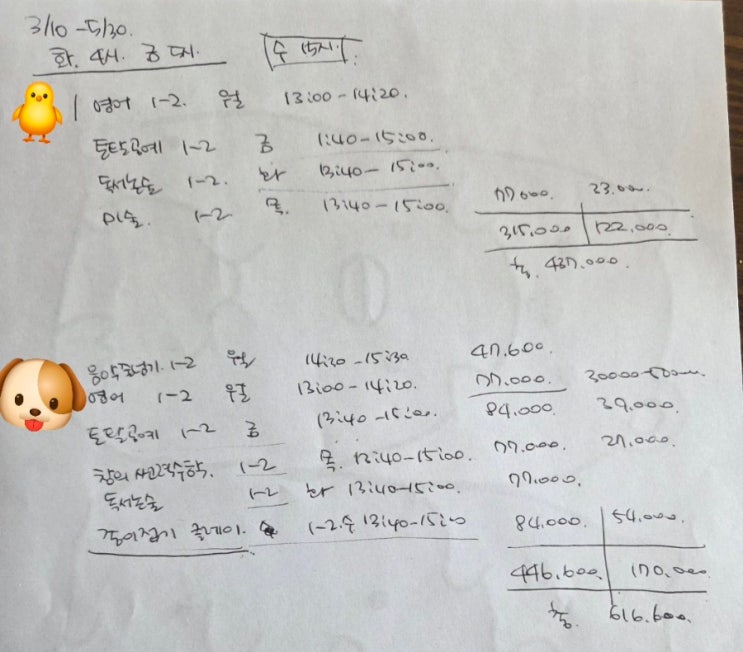 3/10 - 5/30.
화. 4시. 금 5시. 수 15시.
영어 1-2. 월 13:00 - 14:20.
토탈공예 1-2 금 1:40 - 15:00.
독서논술 1-2. 화 13:40 - 15:00.
미술. 1-2 목. 13:40 - 15:00.
77000. 23.000.
315.000 122.000.
총. 437.000.
음악줄넘기. 1-2 월 14:20 - 15:30 47.600.
영어 1-2 월 13:00 - 14:20. 77.000. 30000
토탈공예 1-2 금 13:40 - 15:00. 84.000. 39.000.
창의사고력수학. 1-2 목. 13:40 - 15:00. 77.000. 27.000.
독서논술 1-2 화 13:40 - 15:00. 77.000.
종이접기 클레이. 1-2. 수 13:40 - 15:00 84.000. 54.000.
446.600. 170.000
총. 616.600.